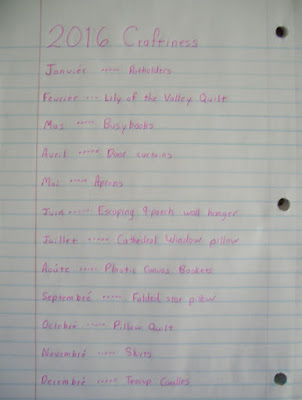 2016 Craftiness
Janvier ..... Potholders
Fevrier ... Lily of the Valley Quilt
Mas ..... Busybooks
Avril ..... Door curtains
Mai ..... Aprons
Juin ..... Escaping 9 patch wall hanger
Juillet ..... Cathedral Window pillow
Aoûte .... Plastic Canvas Baskets
Septembré ..... Folded star pillow
Octobre ..... Pillow Quilt
Novembré ..... Skirts
Decembré ..... Teacup Candles